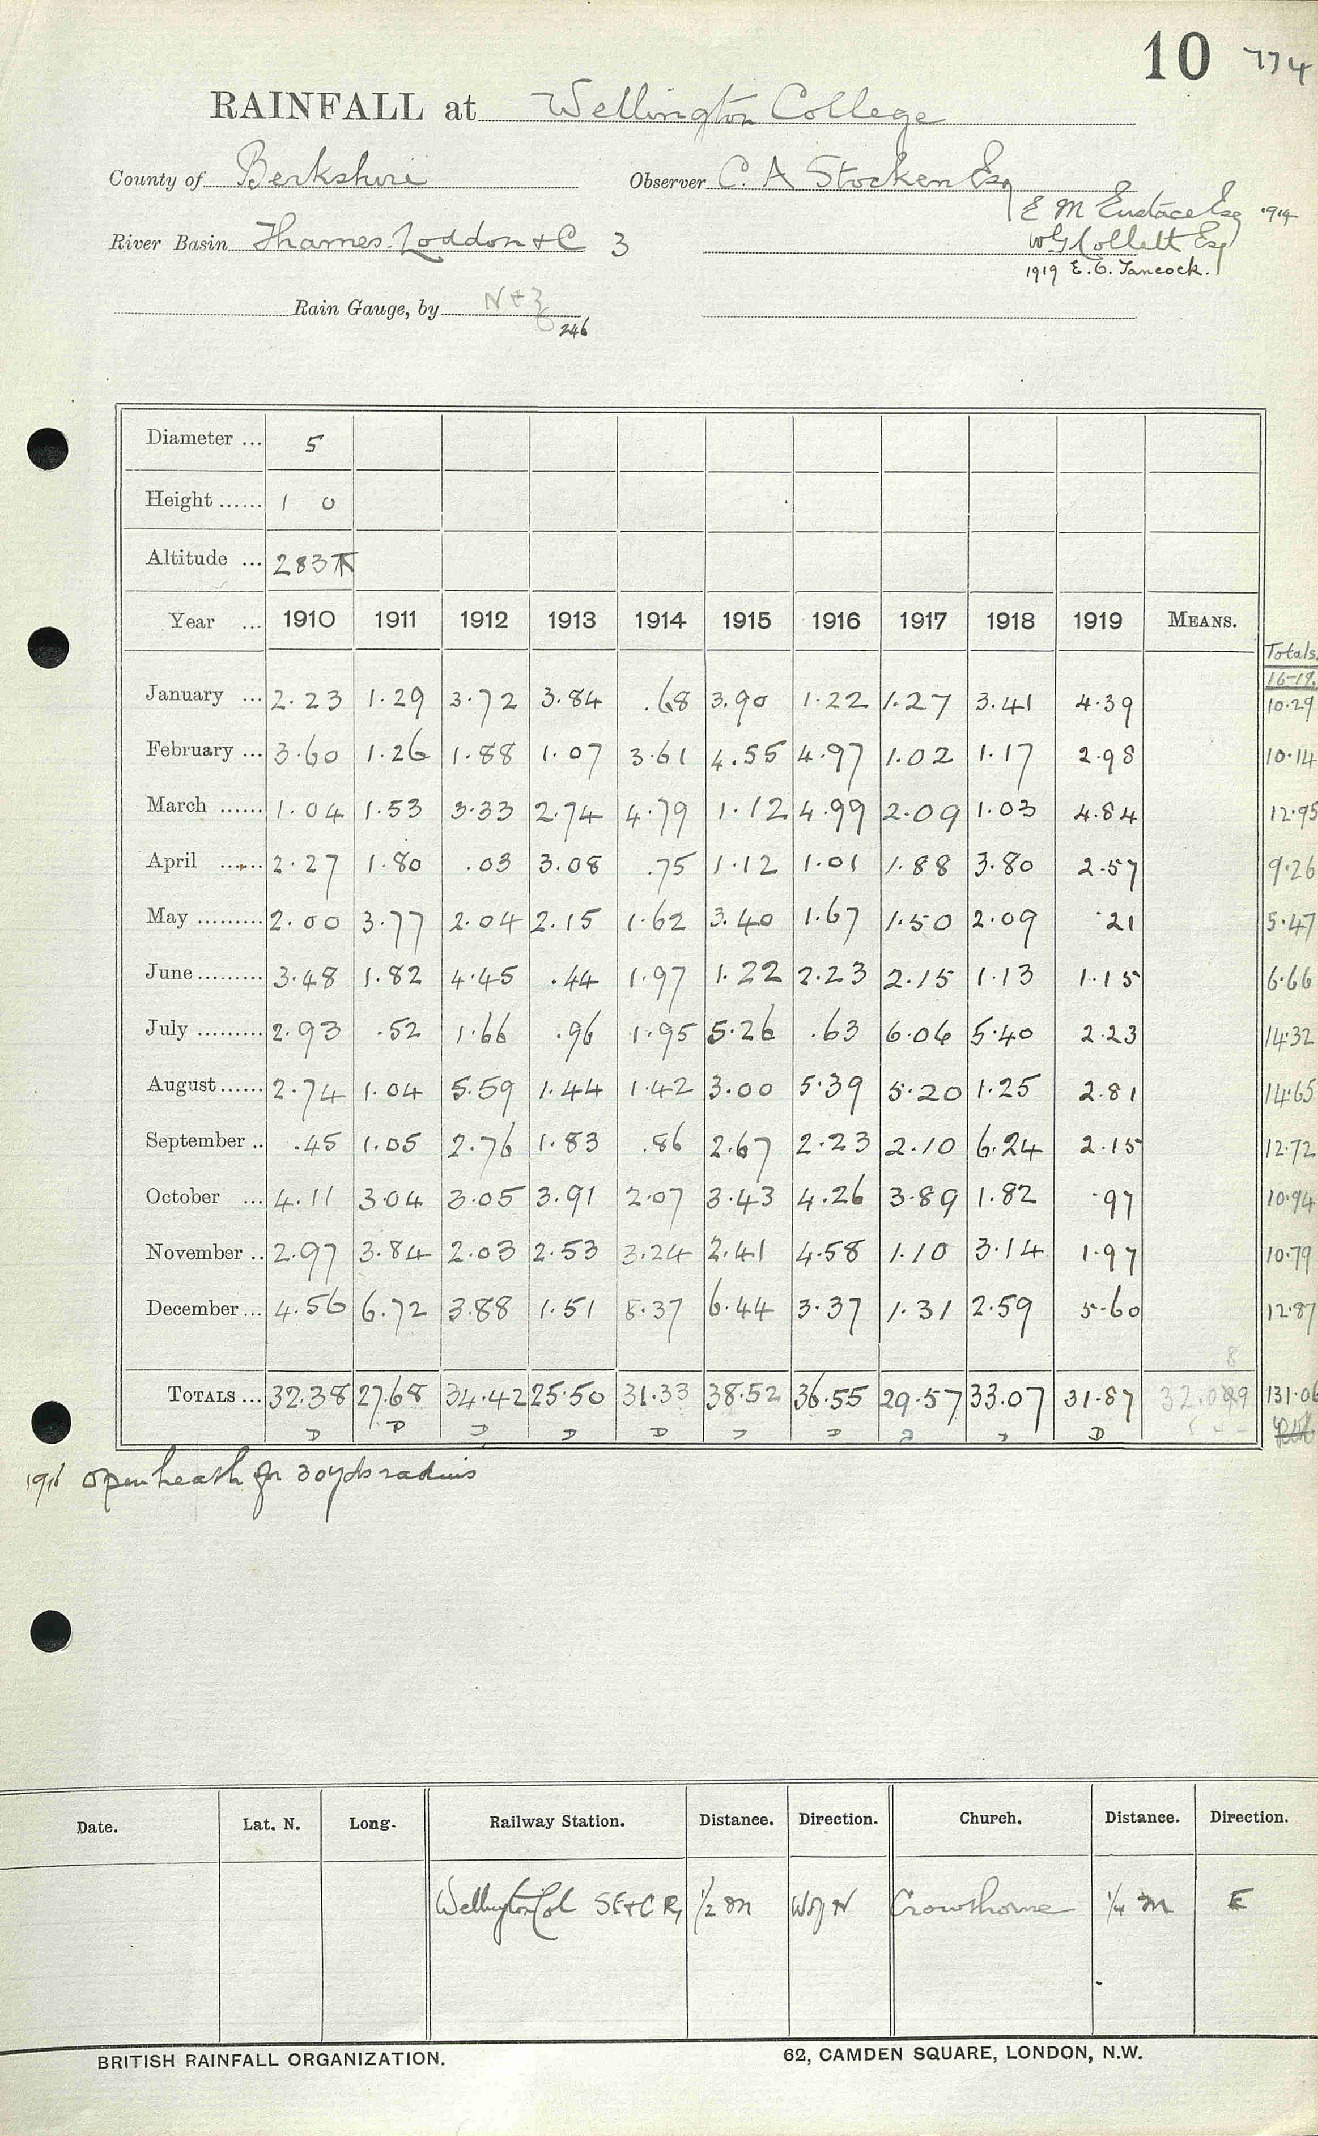 10 774
RAINFALL at Wellington College
County of Berkshire Observer C. A Stocken Esq
E M Eustace Esq 1914
River Basin Thames. Loddon & C 3 W G Collett Esq
1919 E. C. Tancock.
Rain Gauge, by N & Z
246
Diameter ... 5
Height ...... 1 0
Altitude ... 283
Year ... 1910 1911 1912 1913 1914 1915 1916 1917 1918 1919 MEANS.
Totals.
16-19.
January ... 2.23 1.29 3.72 3.84 .68 3.90 1.22 1.27 3.41 4.39 10.29
February ... 3.60 1.26 1.88 1.07 3.61 4.55 4.97 1.02 1.17 2.98 10.14
March ...... 1.04 1.53 3.33 2.74 4.79 1.12 4.99 2.09 1.03 4.84 12.95
April ...... 2.27 1.80 .03 3.08 .75 1.12 1.01 1.88 3.80 2.57 9.26
May ......... 2.00 3.77 2.04 2.15 1.62 3.40 1.67 1.50 2.09 .21 5.47
June ......... 3.48 1.82 4.45 .44 1.97 1.22 2.23 2.15 1.13 1.15 6.66
July ......... 2.93 .52 1.66 .96 1.95 5.26 .63 6.06 5.40 2.23 14.32
August ...... 2.74 1.04 5.59 1.44 1.42 3.00 5.39 5.20 1.25 2.81 14.65
September .. .45 1.05 2.76 1.83 .86 2.67 2.23 2.10 6.24 2.15 12.72
October ... 4.11 3.04 3.05 3.91 2.07 3.43 4.26 3.89 1.82 .97 10.94
November .. 2.97 3.84 2.03 2.53 3.24 2.41 4.58 1.10 3.14 1.97 10.79
December ... 4.56 6.72 3.88 1.51 8.37 6.44 3.37 1.31 2.59 5.60 12.87
TOTALS ... 32.38 27.68 34.42 25.50 31.33 38.52 36.55 29.57 33.07 31.87 131.06
D D D D D D D D D D
1916 open heath for 30 yds radius
Date. Lat. N. Long. Railway Station. Distance. Direction. Church. Distance. Direction.
Wellington Col SE & C R, 1/2 m W by N Crowthorne 1/4 m E
BRITISH RAINFALL ORGANIZATION. 62, CAMDEN SQUARE, LONDON, N.W.